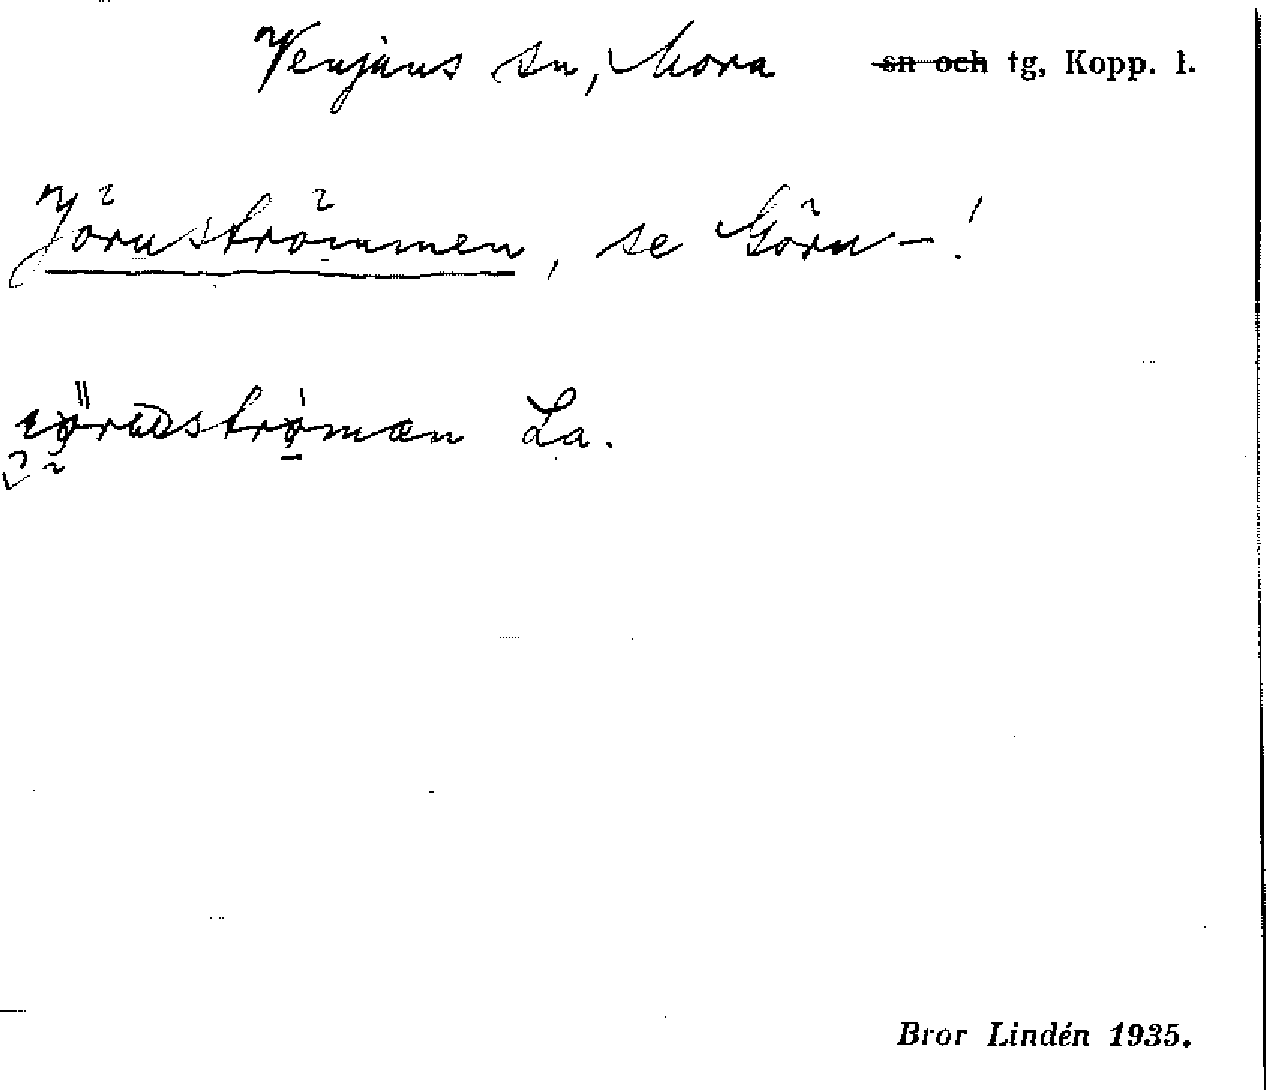 Venjans sn, Mora sn och tg, Kopp. l.
Jörnströmmen, se Görn-!
La.
Bror Lindén 1935.